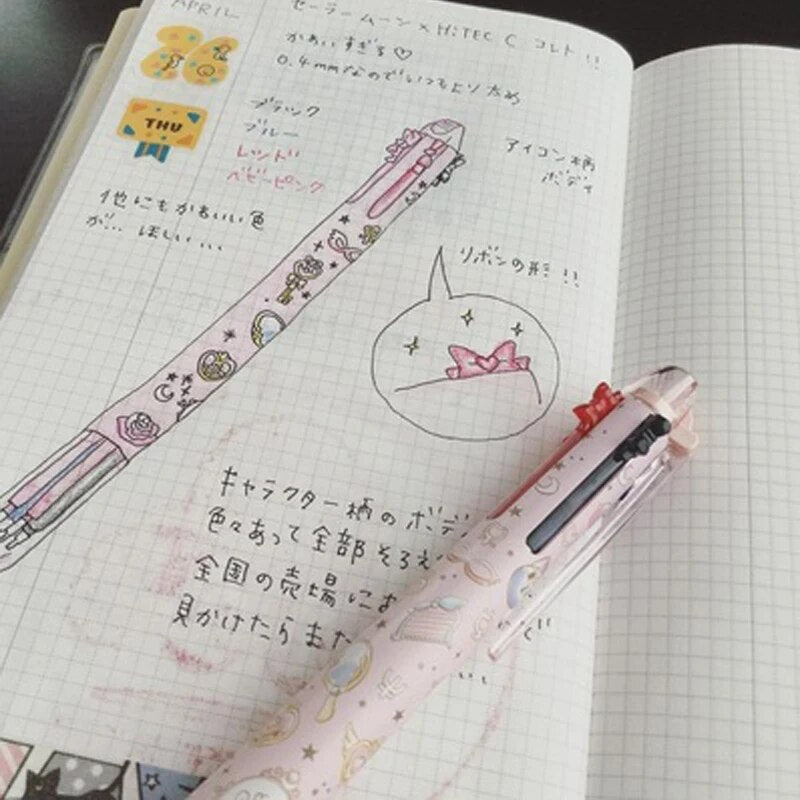 APRIL
26
THU
セーラームーン×HiTEC C コレト!!
かあいすぎる♡
0.4mmなのでいつもより太め
ブラック
ブルー
レッド
ベビーピンク
アイコン柄
ボディ
他にもかわいい色
が... ほしい...
リボンの形!!
キャラクター柄のボディ
色々あって全部そろえ
全国の売場に
見かけたらまた